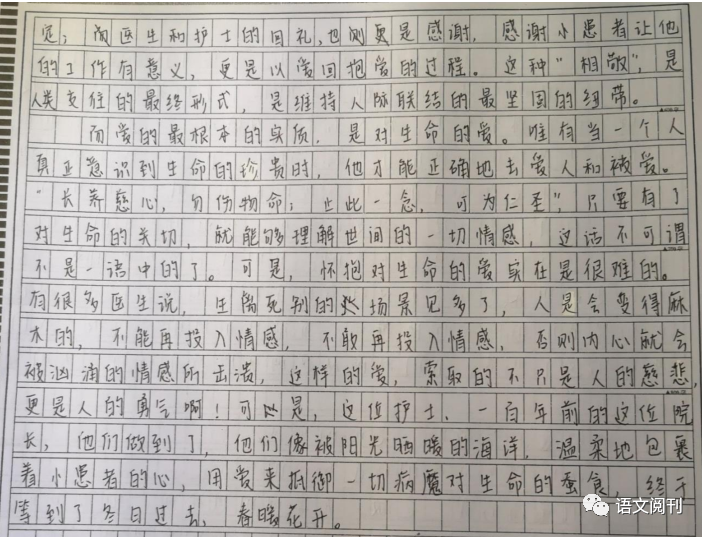 定；而医生和护士的回礼，也则更是感谢，感谢小患者让他
的工作有意义，更是以爱回抱爱的过程。这种“相敬”，是
人类交往的最终形式，是维持人脉联结的最坚固的纽带。
而爱的最根本的实质，是对生命的爱。唯有当一个人
真正意识到生命的珍贵时，他才能正确地去爱人和被爱。
“长养慈心，勿伤物命；止此一念，可为仁圣”，只要有了
对生命的关切，就能够理解世间的一切情感，这话不可谓
不是一语中的了。可是，怀抱对生命的爱实在是很难的。
有很多医生说，生离死别的场景见多了，人是会变得麻
木的，不能再投入情感，不敢再投入情感，否则内心就会
被汹涌的情感所击溃，这样的爱，索取的不只是人的慈悲，
更是人的勇气啊！可是，这位护士，一百年前的这位院
长，他们做到了，他们像被阳光晒暖的海洋，温柔地包裹
着小患者的心，用爱来抵御一切病魔对生命的蚕食，终于
等到了冬日过去，春暖花开。
语文阅刊